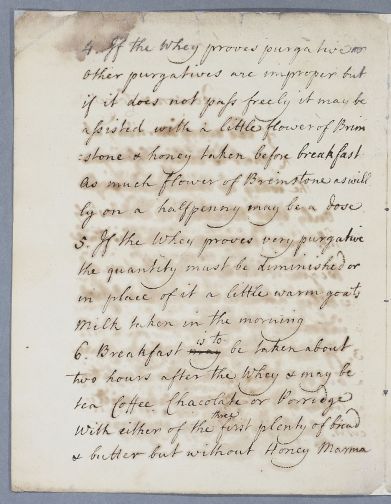 4. If the Whey proves purgative
other purgatives are improper but
if it does not pass freely it may be
assisted with a little flower of Brim
:stone & honey taken before breakfast
As much flower of Brimstone as will
ly on a halfpenny may be a dose
5. If the Whey proves very purgative
the quantity must be diminished or
in place of it a little warm goats
Milk taken in the morning
6. Breakfast is to be taken about
two hours after the Whey & may be
tea Coffee Chacolate or Porridge
With either of the three first plenty of bread
& butter but without Honey Marma